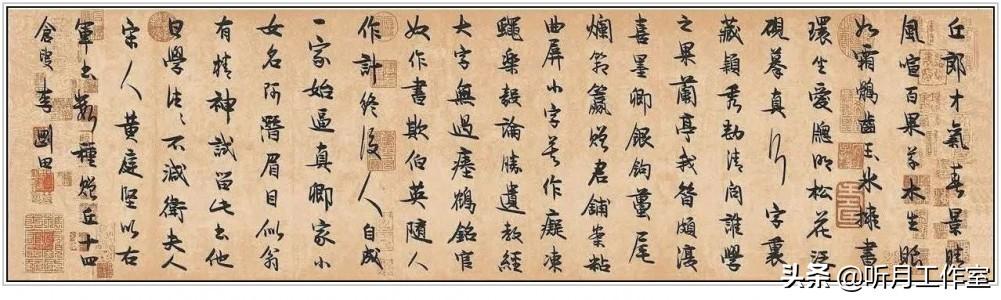 丘郎才氣春景晴
風喧百果草木生眼
如霜鶻齒玉冰擁書
環坐愛牕明松花泛
硯摹真行字裏
藏穎秀勁清問誰學
之果蘭亭我昔頗復
喜墨卿銀鉤蠆尾
爛箱籯贈君鋪案粘
曲屏小字莫作癡凍
蠅樂毅論勝遺教經
大字無過瘞鶴銘官
奴作書欺伯英隨人
作計終後人自成
一家始逼真卿家小
女名阿潛眉目似翁
有精神試留此書他
日學往往不減衛夫人
宋人黃庭堅以右
軍書數種贈丘十四
倉叟李剛田
头条 @听月工作室